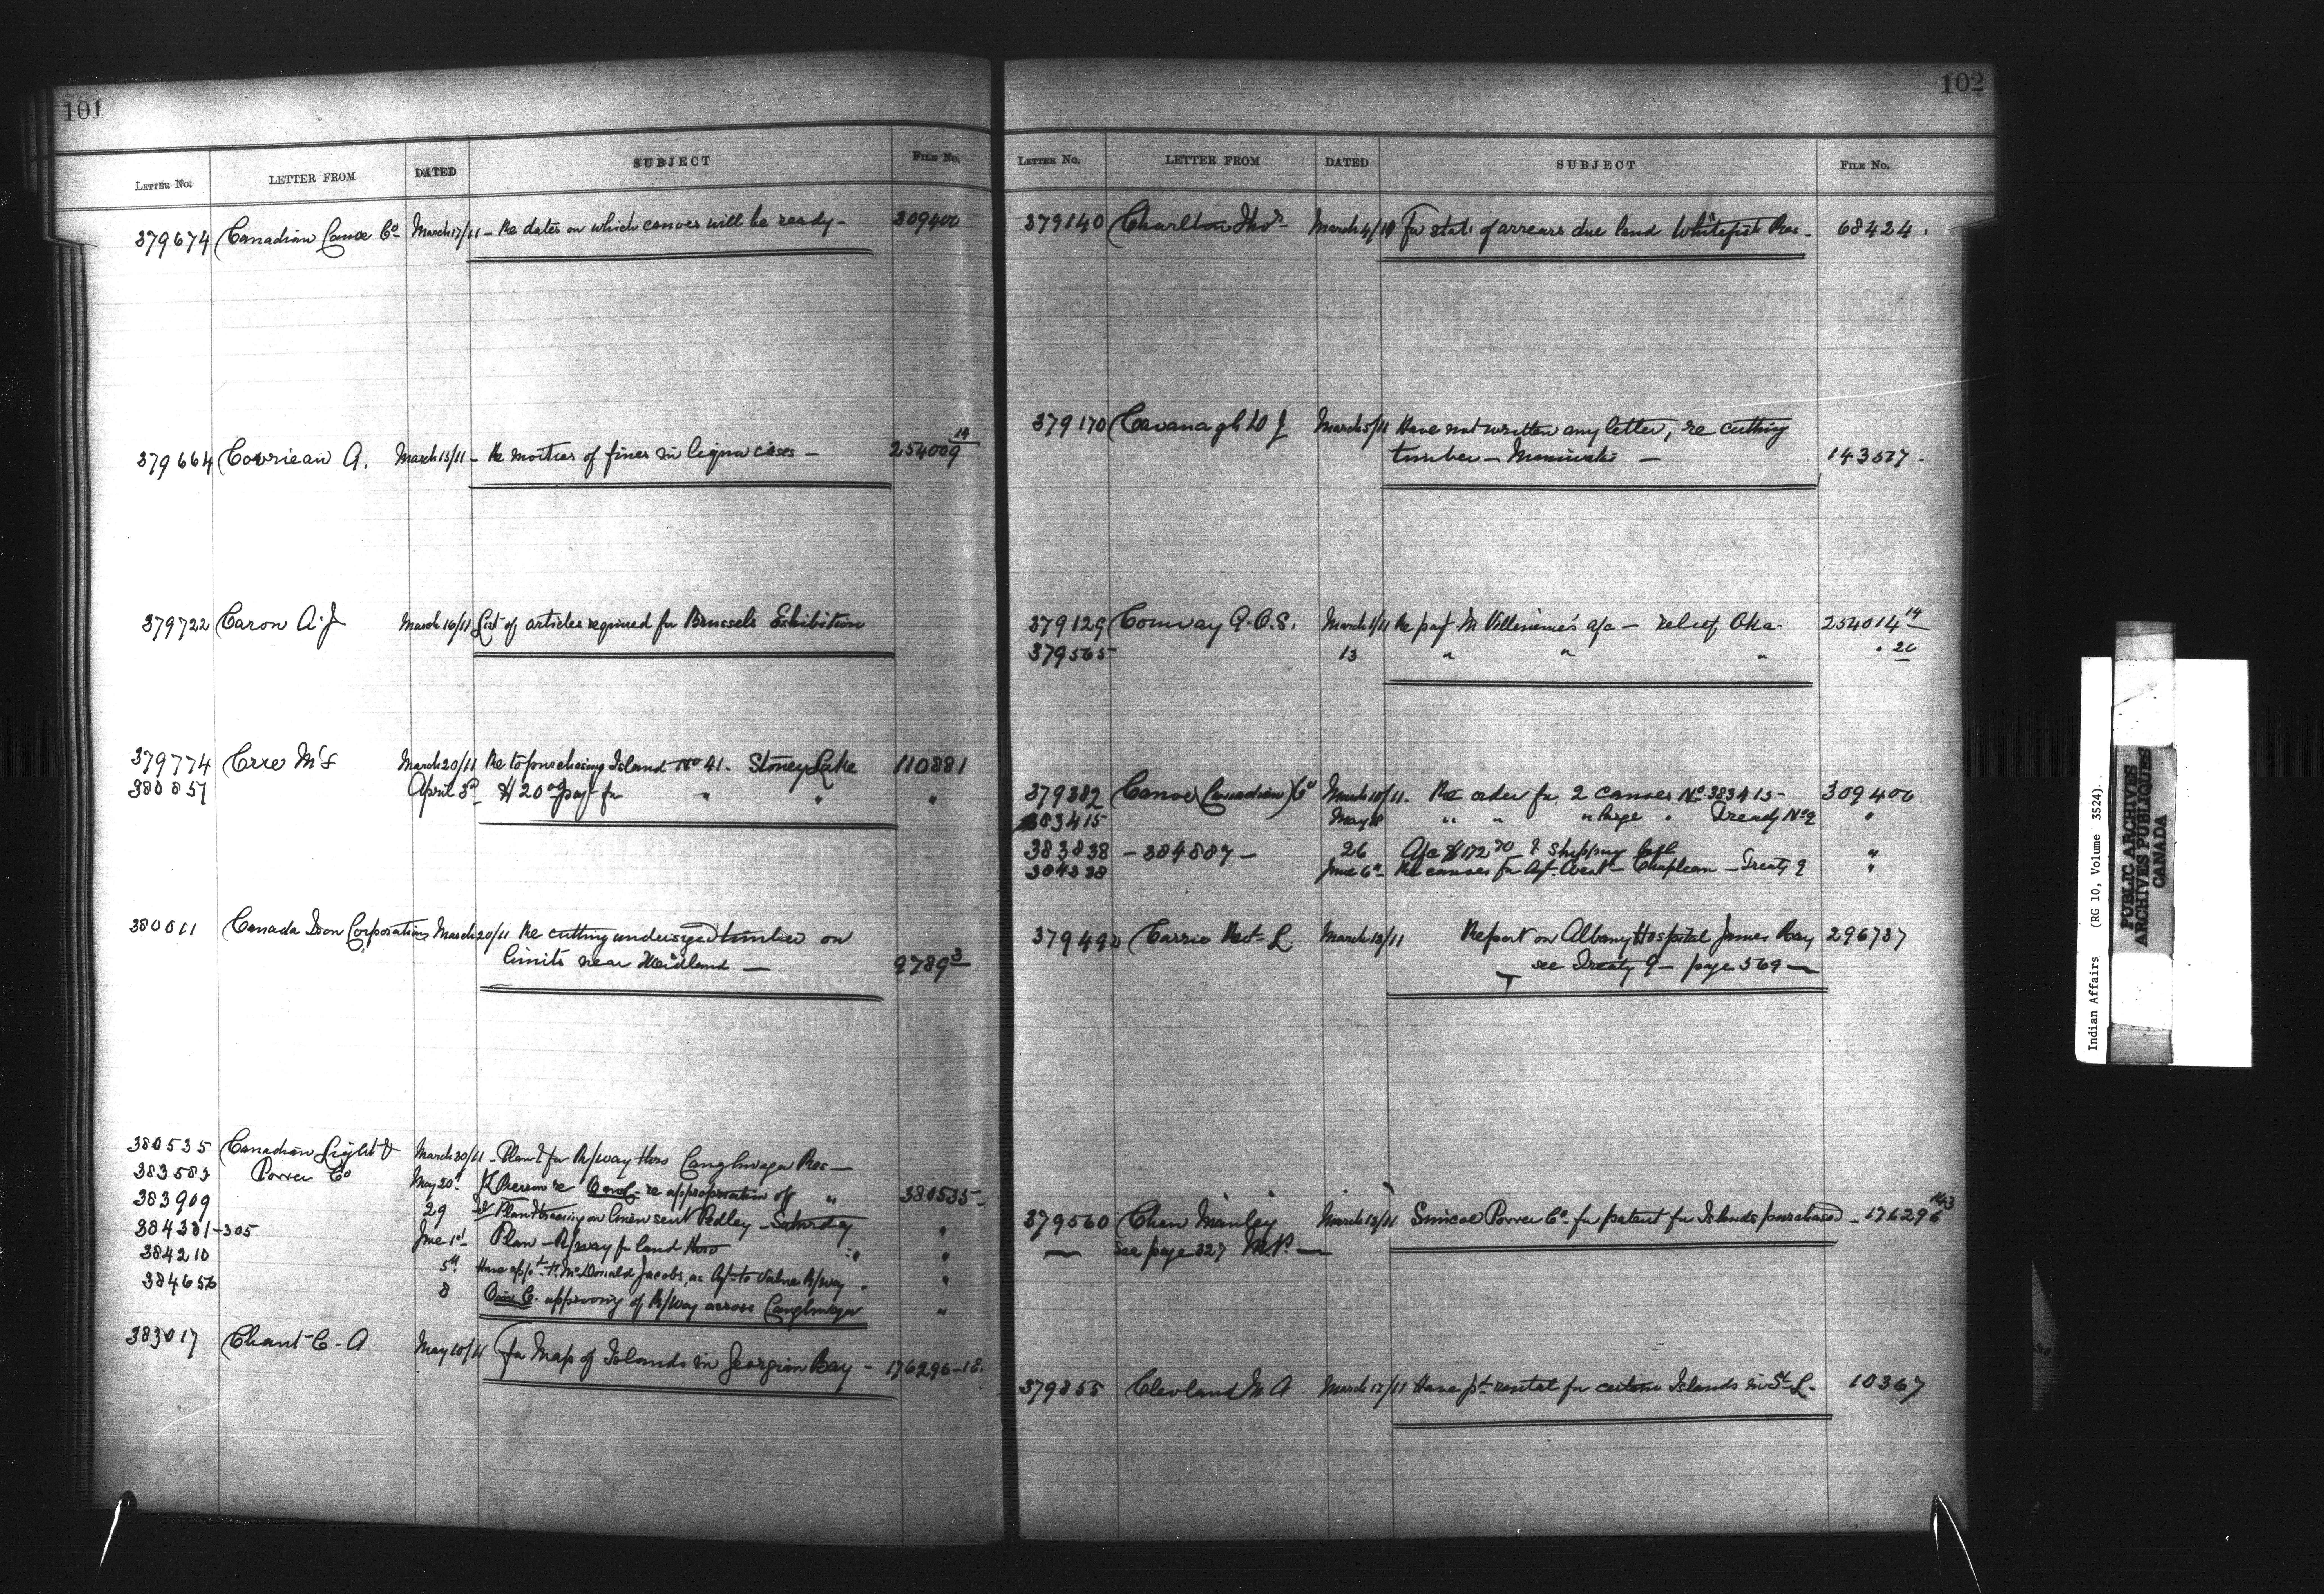 101
LETTER No. LETTER FROM DATED SUBJECT FILE No.
379674 Canadian Canoe Co March 17/11 - Re dates on which canoes will be ready - 309400
379664 Corriean A. March 15/11 - Re moities of fines in liquor cases - 254009 14
379722 Caron A. J March 16/11 List of articles required for Brussels Exhibition
379774 Crre March 20/11 Re to purchasing Island No 41. Stoney Lake 110881
380857 April 3d $20 00 payt for " " "
380011 Canada Iron Corporation March 20/11 Re cutting undersized timber on
limits near Midland — 9789 3
380535 Canadian Light & March 30/11 - Plan & for R/way thro Caughnawaga Res —
383583 Power Co May 20 re appropriation of " 380535 -
383909 29 Plan & tracing on linen sent Pedley - Saturday "
384281-305 June 1st Plan - R/way for land thro "
384210 5th Have appt. McDonald Jacobs, as Agt. to value R/way . "
384656 8 approving of R/way across Caughnawaga "
383017 Chant C. A May 10/11 for Map of Islands in Georgian Bay - 176296-18.
102
LETTER No. LETTER FROM DATED SUBJECT FILE No.
379140 Charlton Thos March 4/11 For stat. of arrears due land Whitefish Res. 68424.
379170 Cavanagh W J March 5/11 Have not written any letter, re cutting
timber - Maniwaki — 143517.
379129 Conway A. O. S. March 1/11 Re payt. M Villeneuve's a/c - relief Oka. 254014 14
379565 13 " " " " 20
379382 Canoe (Canadian) Co March 10/11. Re order for 2 canoes No. 383415 - 309400
383415 May 18 " " " large " Treaty No 9 "
383838 - 384887 - 26 A/c $172 70 & shipping bill "
384338 June 6th Re canoes for Agt. West - Chapleau - Treaty 9 "
379492 Carrie Revt. L March 13/11 Report on Albany Hospital James Bay 296787
see Treaty 9 - page 569 —
379560 Chew Manley March 13/11 Simcoe Power Co. for patent for Islands purchased - 176296 143
— see page 327 M.P. —
379855 Clevland M A March 17/11 Have pt. rental for certain Islands in St L. 10367
Indian Affairs (RG 10, Volume 3524)
PUBLIC ARCHIVES
ARCHIVES PUBLIQUES
CANADA